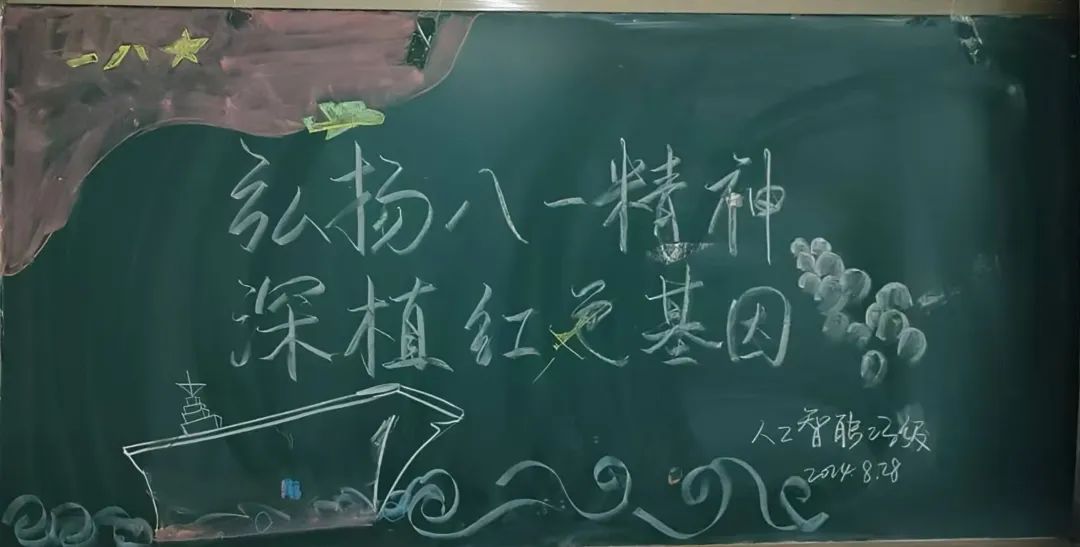 一八
弘扬八一精神
深植红色基因
人工智能
2024.8.28